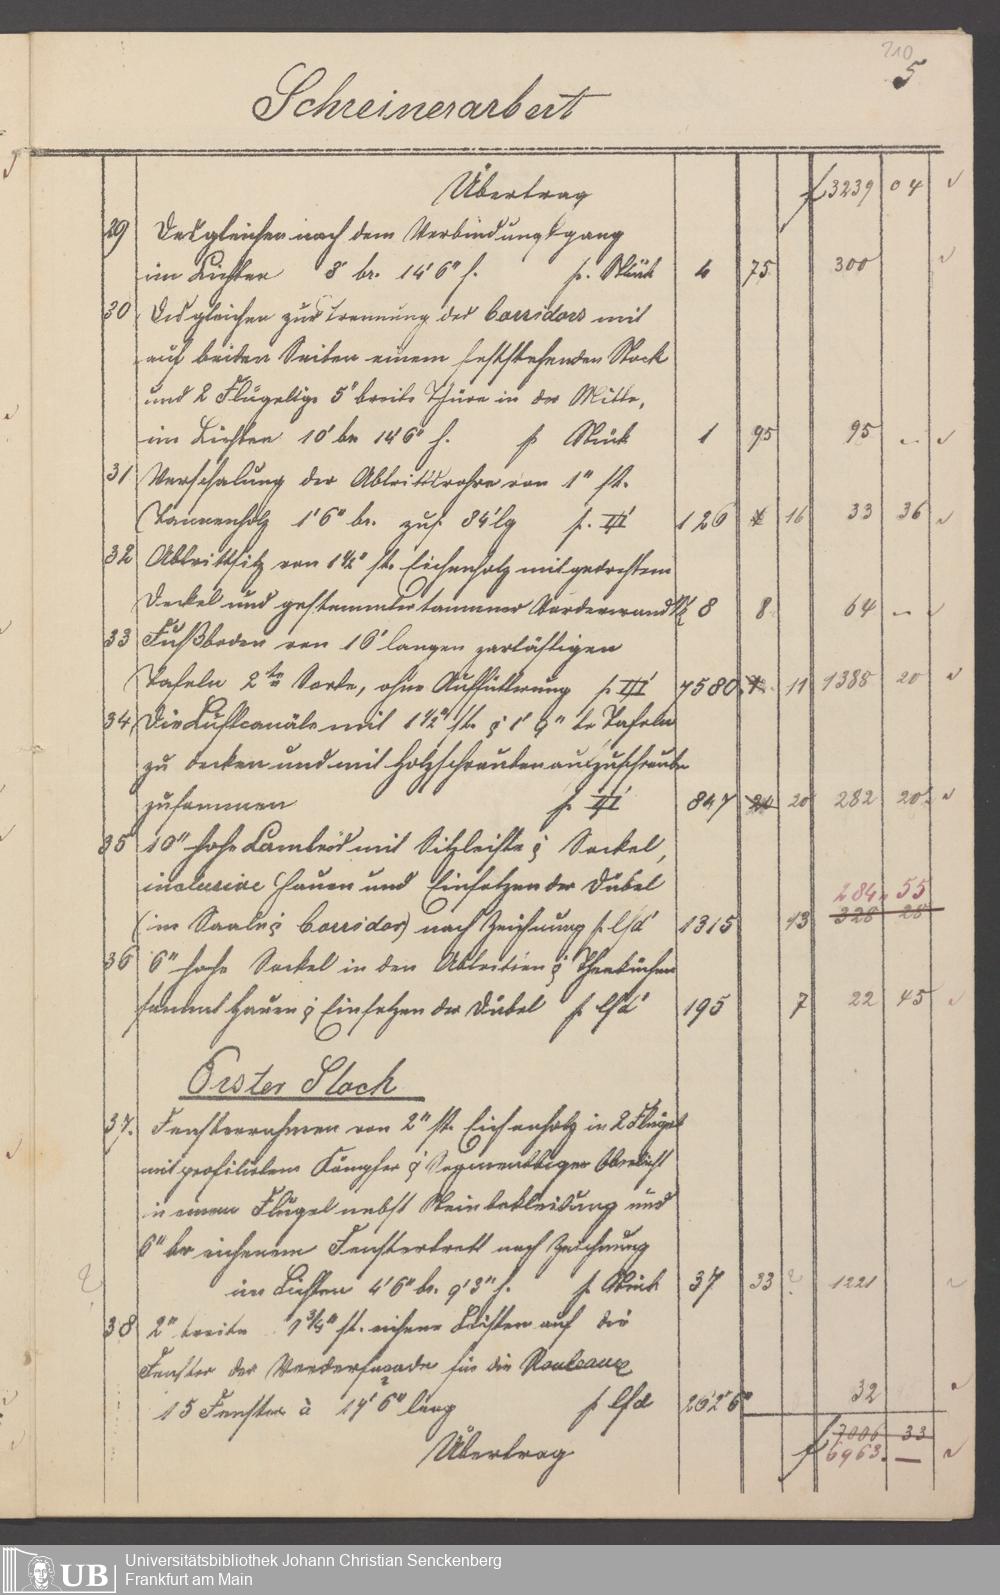 210
5
Schreinerarbeit
Übertrag f 3239 04
29 Desgleichen nach dem Verbindungsgang
im Lichten 8' br. 14'6" h. p. Stück 4 75 300
30 Desgleichen zur Trennung des Corridors mit
auf beiden Seiten einem feststehenden Stock
und 2 Flügelige 5' breite Thüre in der Mitte,
im Lichten 10' br 14'6" h. p Stück 1 95 95 —
31 Verschalung der Abtrittsrohre von 1" st.
Tannenholz 1'6" br. zus. 84' lg p. □' 126 16 33 36
32 Abtrittsitz von 1½" st. Eichenholz mit
Deckel und gestemmter tannener Vorderwand 8 8 64 —
33 Fußboden von 16' langen
Tafeln 2te Sorte, ohne Auffütterung p. □' 7580 11 1388 20
34 Die Luftcanäle mit 1½" st. & 1' 9" br Tafeln
zu decken und mit Holzschrauben aufzuschrauben
zusammen p. □' 847 20 282 20
35 10" hohe Lambris mit Sitzleiste & Sockel,
inclusive Hauen und Einsetzen der Dübel 284 55
(im Saale & Corridor) nach Zeichnung p. lfd' 1315 13 328 25
36 6" hohe Sockel in den Abtritten & Theeküchen
sammt Hauen & Einsetzen der Dübel p lfd' 195 7 22 45
Erster Stock
37. Fensterrahmen von 2" st. Eichenholz in 2 Flügel
mit profilirtem Kämpfer & Segmentbogen Oberlicht
in einem Flügel nebst Steinbekleidung und
6" br eichenem Fensterbrett nach Zeichnung
im Lichten 4'6" br. 9'3" h. p Stück 37 33 ? 1221
38 2" breite 1¾" st. eichene Leisten auf die
Fenster der Vorderfacade für die Rouleaux
15 Fenster à 14' 6" lang p lfd 262'6" 32
7006 33
Übertrag f 6963. —
Universitätsbibliothek Johann Christian Senckenberg
Frankfurt am Main
UB